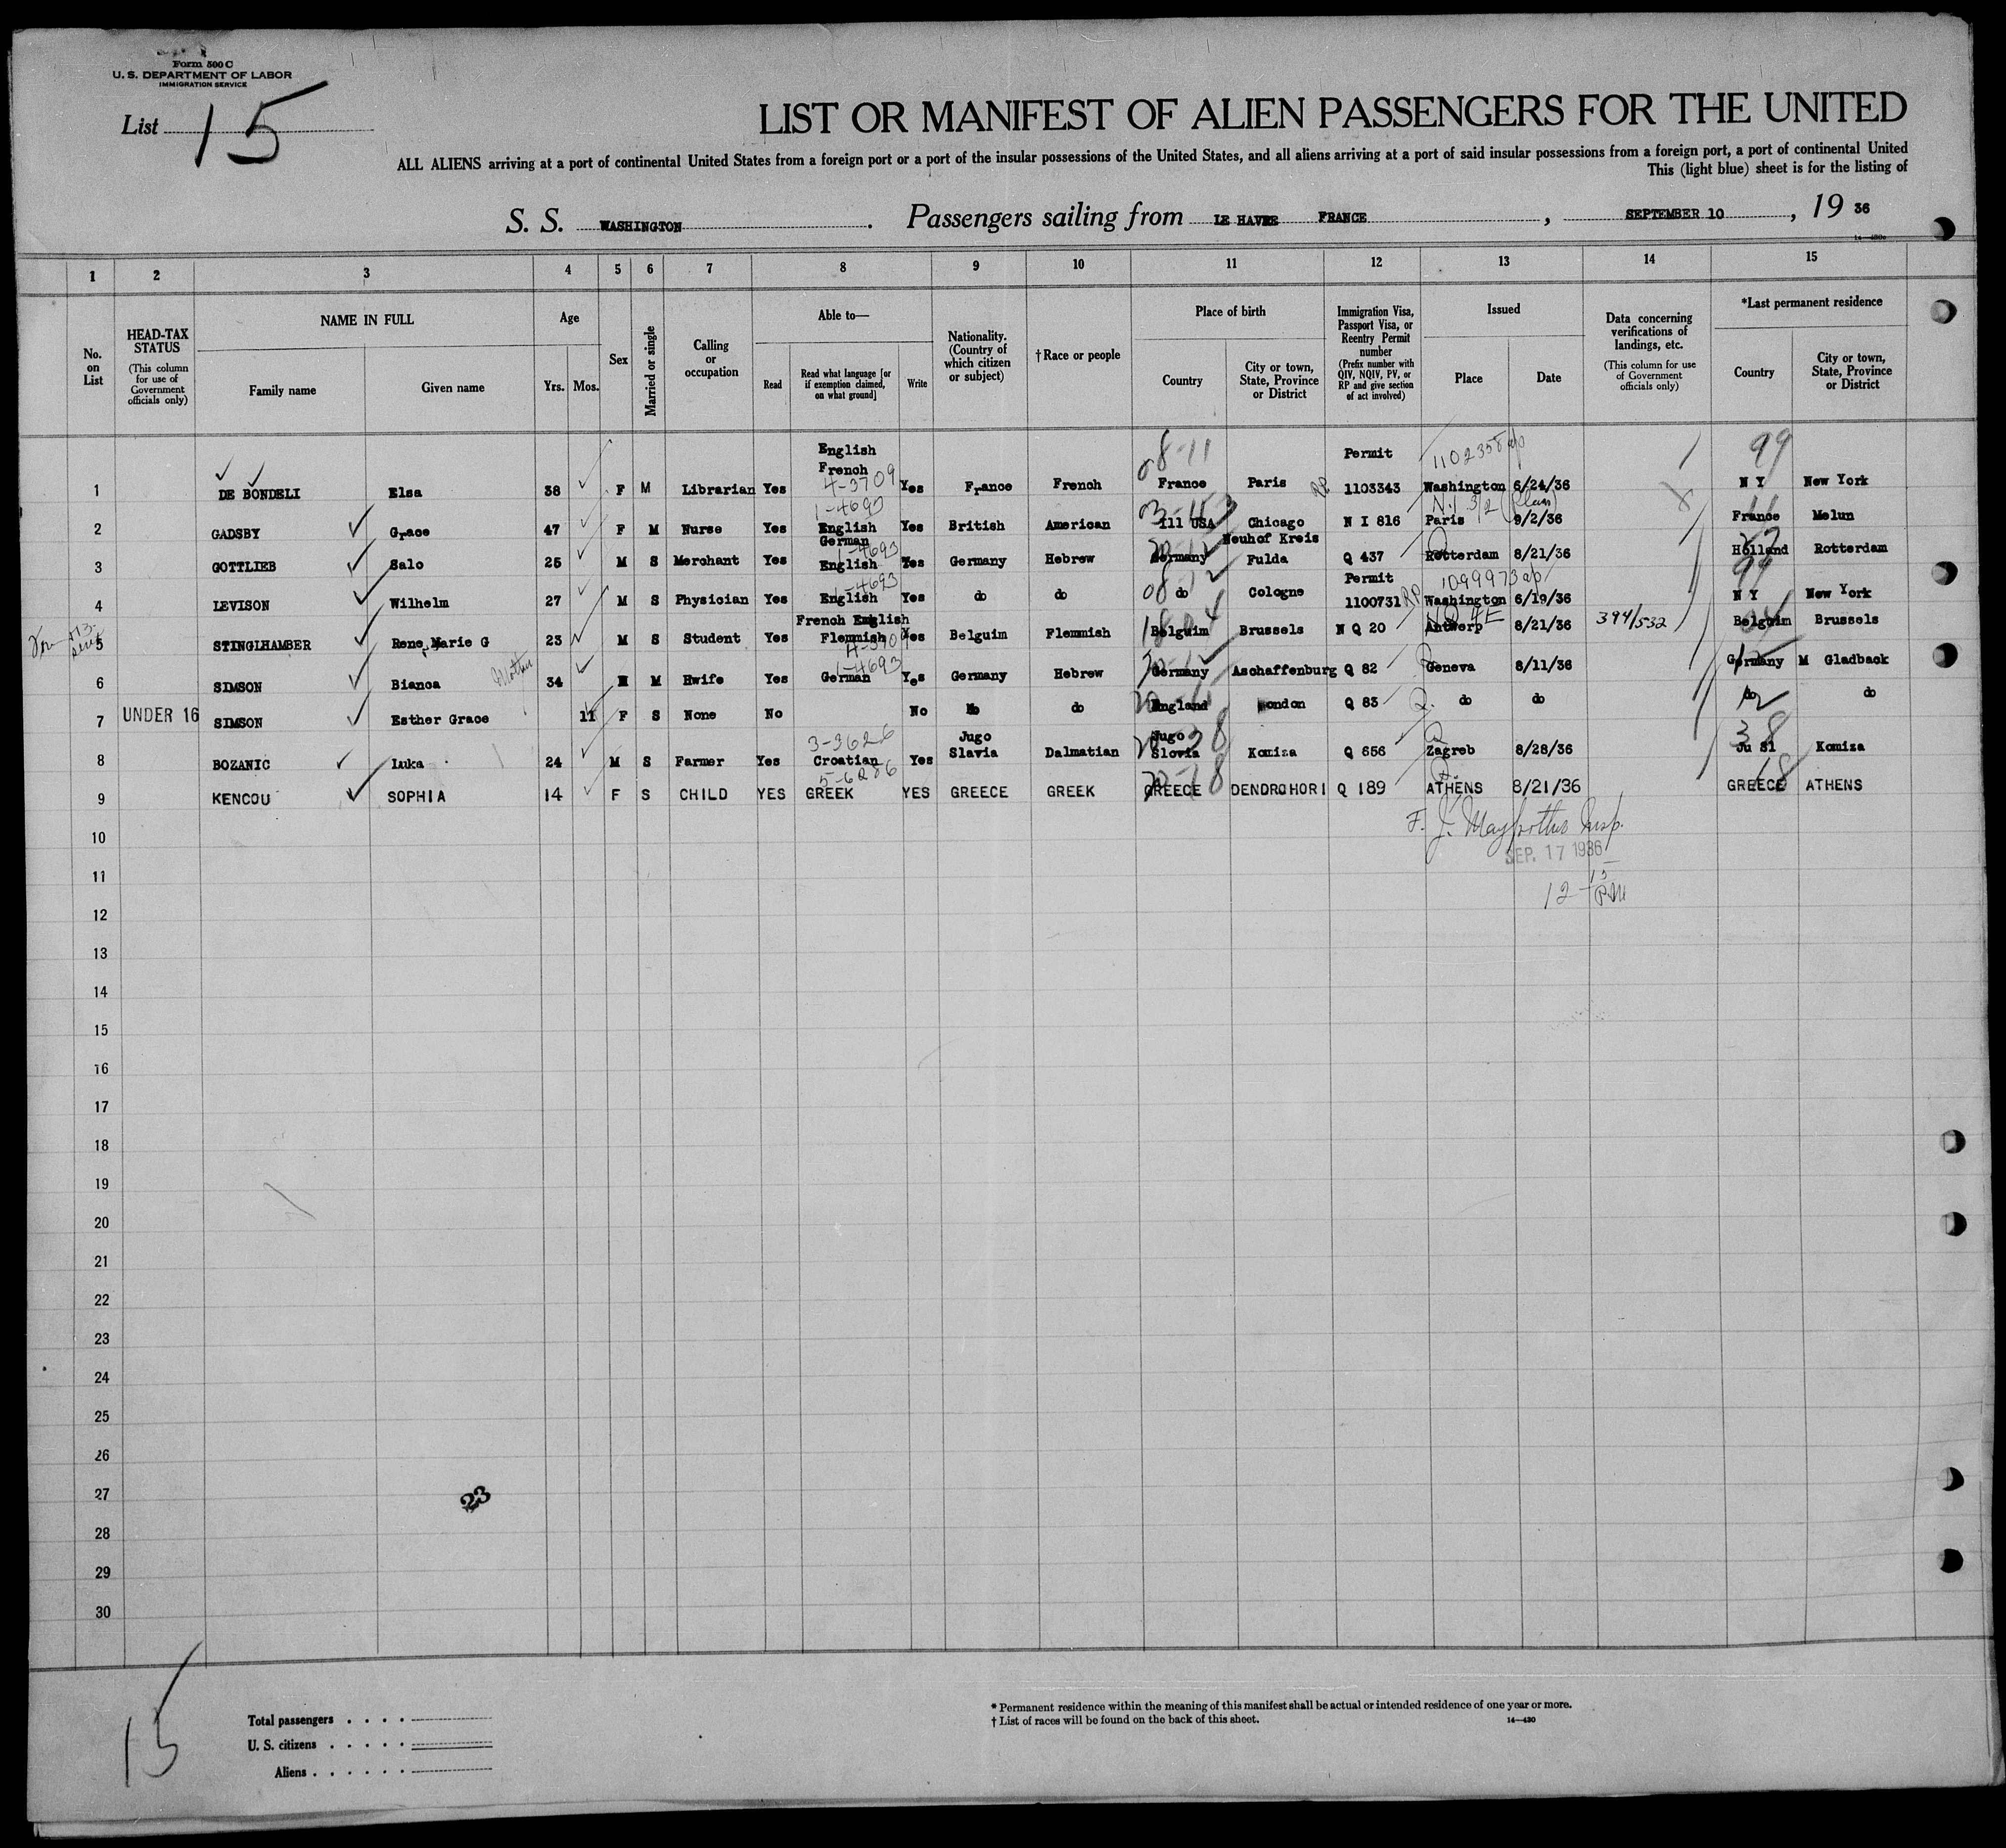 Form 500 C
U. S. DEPARTMENT OF LABOR
IMMIGRATION SERVICE
List 15
LIST OR MANIFEST OF ALIEN PASSENGERS FOR THE UNITED
ALL ALIENS arriving at a port of continental United States from a foreign port or a port of the insular possessions of the United States, and all aliens arriving at a port of said insular possessions from a foreign port, a port of continental United
This (light blue) sheet is for the listing of
S. S. WASHINGTON. Passengers sailing from LE HAVRE FRANCE, SEPTEMBER 10, 19 36
1 2 3 4 5 6 7 8 9 10 11 12 13 14 15
No. on List
HEAD-TAX STATUS (This column for use of Government officials only)
NAME IN FULL Family name Given name
Age Yrs. Mos.
Sex
Married or single
Calling or occupation
Able to— Read Read what language [or if exemption claimed, on what ground] Write
Nationality. (Country of which citizen or subject)
†Race or people
Place of birth Country City or town, State, Province or District
Immigration Visa, Passport Visa, or Reentry Permit number (Prefix number with QIV, NQIV, PV, or RP and give section of act involved)
Issued Place Date
Data concerning verifications of landings, etc. (This column for use of Government officials only)
*Last permanent residence Country City or town, State, Province or District
English Permit 1102358 99
French 08-11
4-3709
1 DE BONDELI Elsa 38 F M Librarian Yes Yes France French France Paris RP 1103343 Washington 6/24/36 N Y New York
1-4693
2 GADSBY Grace 47 F M Nurse Yes English Yes British American Ill USA Chicago N I 816 Paris 9/2/36 France Melun
German Neuhof Kreis
1-4693
3 GOTTLIEB Salo 25 M S Merchant Yes English Yes Germany Hebrew Germany Fulda Q 437 Rotterdam 8/21/36 Holland Rotterdam
1-4693 Permit 1099973 99
4 LEVISON Wilhelm 27 M S Physician Yes English Yes do do do Cologne 1100731 RP Washington 6/19/36 N Y New York
French English
5 STINGLHAMBER Rene Marie G 23 M S Student Yes Flemmish Yes Belguim Flemmish Belguim Brussels N Q 20 Antwerp 8/21/36 394/532 Belguim Brussels
1-4693
6 SIMSON Bianca Mother 34 M Hwife Yes German Yes Germany Hebrew Germany Aschaffenburg Q 82 Geneva 8/11/36 Germany M Gladback
7 UNDER 16 SIMSON Esther Grace 11 F S None No No do England London Q 83 do do do do
3-3626 Jugo Jugo 38
8 BOZANIC Luka 24 M S Farmer Yes Croatian Yes Slavia Dalmatian Slovia Komiza Q 656 Zagreb 8/28/36 Ju Sl Komiza
5-6286
9 KENCOU SOPHIA 14 F S CHILD YES GREEK YES GREECE GREEK GREECE DENDROHORI Q 189 ATHENS 8/21/36 GREECE ATHENS
10
SEP. 17 1936
11
12 15 PM
12
13
14
15
16
17
18
19
20
21
22
23
24
25
26
27
23
28
29
30
15
Total passengers
U. S. citizens
Aliens
* Permanent residence within the meaning of this manifest shall be actual or intended residence of one year or more.
† List of races will be found on the back of this sheet.
14—430